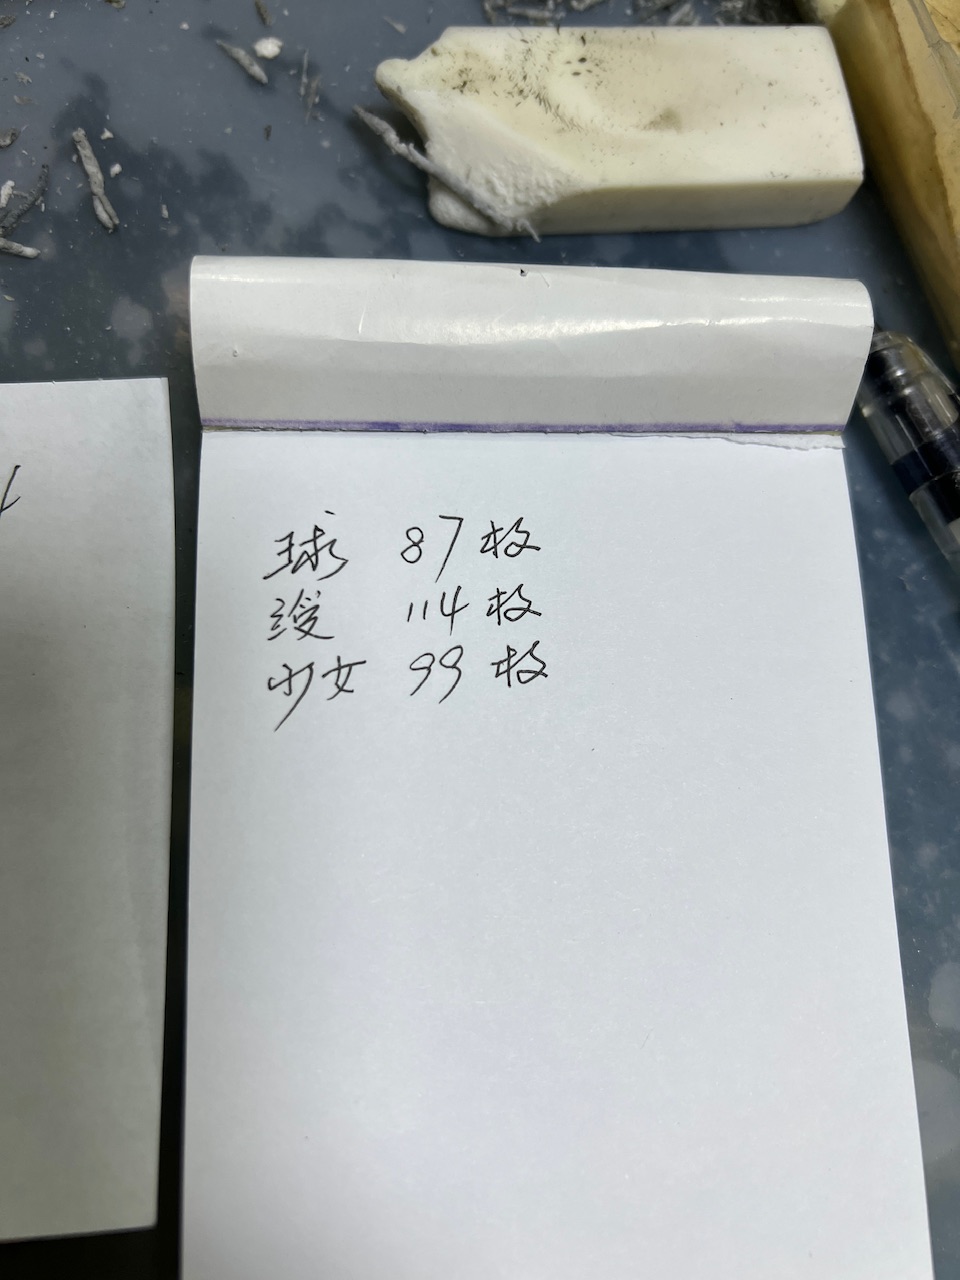 球 87 枚
绶 114 枚
少女 99 枚